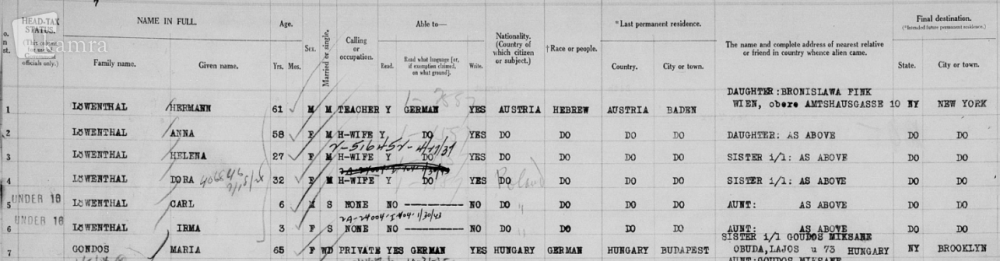 HEAD-TAX STATUS.
NAME IN FULL. Age. Able to— *Last permanent residence. Final destination.
Sex. Married or single. Calling or occupation. Nationality. (Country of which citizen or subject.) †Race or people. The name and complete address of nearest relative or friend in country whence alien came.
Family name. Given name. Yrs. Mos. Read. Read what language [or, if exemption claimed, on what ground]. Write. Country. City or town. State. City or town.
DAUGHTER:BRONISLAWA FINK
1 LÖWENTHAL HERMANN 61 M M TEACHER Y GERMAN YES AUSTRIA HEBREW AUSTRIA BADEN WIEN, obere AMTSHAUSGASSE 10 NY NEW YORK
2 LÖWENTHAL ANNA 58 F M H-WIFE Y DO YES DO DO DO DO DAUGHTER: AS ABOVE DO DO
3 LÖWENTHAL HELENA 27 F M H-WIFE Y DO YES DO DO DO DO SISTER i/l: AS ABOVE DO DO
4 LÖWENTHAL DORA 32 F M H-WIFE Y DO YES DO DO DO DO SISTER i/l: AS ABOVE DO DO
UNDER 16
5 LÖWENTHAL CARL 6 M S NONE NO NO DO DO DO DO AUNT: AS ABOVE DO DO
UNDER 16
6 LÖWENTHAL IRMA 3 F S NONE NO NO DO DO DO DO AUNT: AS ABOVE DO DO
SISTER i/l GOUDOS MIKSANE
7 GONDOS MARIA 65 F WD PRIVATE YES GERMAN YES HUNGARY GERMAN HUNGARY BUDAPEST OBUDA, LAJOS u 73 HUNGARY NY BROOKLYN